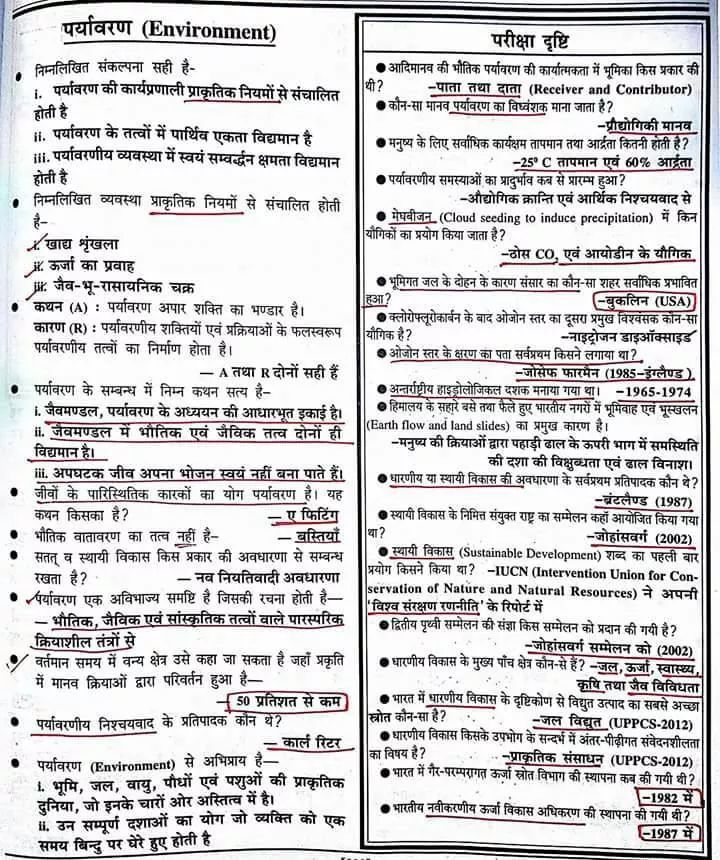 पर्यावरण (Environment)
निम्नलिखित संकल्पना सही है-
i. पर्यावरण की कार्यप्रणाली प्राकृतिक नियमों से संचालित
होती है
ii. पर्यावरण के तत्वों में पार्थिव एकता विद्यमान है
iii. पर्यावरणीय व्यवस्था में स्वयं सम्वर्द्धन क्षमता विद्यमान
होती है
निम्नलिखित व्यवस्था प्राकृतिक नियमों से संचालित होती
है–
i. खाद्य शृंखला
ii. ऊर्जा का प्रवाह
iii. जैव-भू-रासायनिक चक्र
कथन (A) : पर्यावरण अपार शक्ति का भण्डार है।
कारण (R) : पर्यावरणीय शक्तियों एवं प्रक्रियाओं के फलस्वरूप
पर्यावरणीय तत्वों का निर्माण होता है।
— A तथा R दोनों सही हैं
पर्यावरण के सम्बन्ध में निम्न कथन सत्य है–
i. जैवमण्डल, पर्यावरण के अध्ययन की आधारभूत इकाई है।
ii. जैवमण्डल में भौतिक एवं जैविक तत्व दोनों ही
विद्यमान है।
iii. अपघटक जीव अपना भोजन स्वयं नहीं बना पाते हैं।
जीवों के पारिस्थितिक कारकों का योग पर्यावरण है। यह
कथन किसका है? — ए फिटिंग
भौतिक वातावरण का तत्व नहीं है– — बस्तियाँ
सतत् व स्थायी विकास किस प्रकार की अवधारणा से सम्बन्ध
रखता है? — नव नियतिवादी अवधारणा
पर्यावरण एक अविभाज्य समष्टि है जिसकी रचना होती है—
— भौतिक, जैविक एवं सांस्कृतिक तत्वों वाले पारस्परिक
क्रियाशील तंत्रों से
वर्तमान समय में वन्य क्षेत्र उसे कहा जा सकता है जहाँ प्रकृति
में मानव क्रियाओं द्वारा परिवर्तन हुआ है—
— 50 प्रतिशत से कम
पर्यावरणीय निश्चयवाद के प्रतिपादक कौन थे?
— कार्ल रिटर
पर्यावरण (Environment) से अभिप्राय है—
i. भूमि, जल, वायु, पौधों एवं पशुओं की प्राकृतिक
दुनिया, जो इनके चारों ओर अस्तित्व में है।
ii. उन सम्पूर्ण दशाओं का योग जो व्यक्ति को एक
समय बिन्दु पर घेरे हुए होती है
परीक्षा दृष्टि
आदिमानव की भौतिक पर्यावरण की कार्यात्मकता में भूमिका किस प्रकार की
थी? –पाता तथा दाता (Receiver and Contributor)
कौन-सा मानव पर्यावरण का विध्वंशक माना जाता है?
–प्रौद्योगिकी मानव
मनुष्य के लिए सर्वाधिक कार्यक्षम तापमान तथा आर्द्रता कितनी होती है?
–25⁰ C तापमान एवं 60% आर्द्रता
पर्यावरणीय समस्याओं का प्रादुर्भाव कब से प्रारम्भ हुआ?
–औद्योगिक क्रान्ति एवं आर्थिक निश्चयवाद से
मेघबीजन (Cloud seeding to induce precipitation) में किन
यौगिकों का प्रयोग किया जाता है?
–ठोस CO₂ एवं आयोडीन के यौगिक
भूमिगत जल के दोहन के कारण संसार का कौन-सा शहर सर्वाधिक प्रभावित
हुआ? –बुकलिन (USA)
क्लोरोफ्लूरोकार्बन के बाद ओजोन स्तर का दूसरा प्रमुख विश्वसक कौन-सा
यौगिक है? –नाइट्रोजन डाइऑक्साइड
ओजोन स्तर के क्षरण का पता सर्वप्रथम किसने लगाया था?
–जोसेफ फारमैन (1985–इंग्लैण्ड )
अन्तर्राष्ट्रीय हाइड्रोलॉजिकल दशक मनाया गया था। –1965-1974
हिमालय के सहारे बसे तथा फैले हुए भारतीय नगरों में भूमिवाह एवं भूस्खलन
(Earth flow and land slides) का प्रमुख कारण है।
–मनुष्य की क्रियाओं द्वारा पहाड़ी ढाल के ऊपरी भाग में समस्थिति
की दशा की विक्षुब्धता एवं ढाल विनाश।
धारणीय या स्थायी विकास की अवधारणा के सर्वप्रथम प्रतिपादक कौन थे?
–ब्रंटलैण्ड (1987)
स्थायी विकास के निमित्त संयुक्त राष्ट्र का सम्मेलन कहाँ आयोजित किया गया
था? –जोहांसवर्ग (2002)
स्थायी विकास (Sustainable Development) शब्द का पहली बार
प्रयोग किसने किया था? –IUCN (Intervention Union for Con-
servation of Nature and Natural Resources) ने अपनी
'विश्व संरक्षण रणनीति' के रिपोर्ट में
द्वितीय पृथ्वी सम्मेलन की संज्ञा किस सम्मेलन को प्रदान की गयी है?
–जोहांसवर्ग सम्मेलन को (2002)
धारणीय विकास के मुख्य पाँच क्षेत्र कौन-से हैं? –जल, ऊर्जा, स्वास्थ्य,
कृषि तथा जैव विविधता
भारत में धारणीय विकास के दृष्टिकोण से विद्युत उत्पाद का सबसे अच्छा
स्रोत कौन-सा है? –जल विद्युत (UPPCS-2012)
धारणीय विकास किसके उपभोग के सन्दर्भ में अंतर-पीढ़ीगत संवेदनशीलता
का विषय है? –प्राकृतिक संसाधन (UPPCS-2012)
भारत में गैर-परम्परागत ऊर्जा स्रोत विभाग की स्थापना कब की गयी थी?
–1982 में
भारतीय नवीकरणीय ऊर्जा विकास अधिकरण की स्थापना की गयी थी?
–1987 में